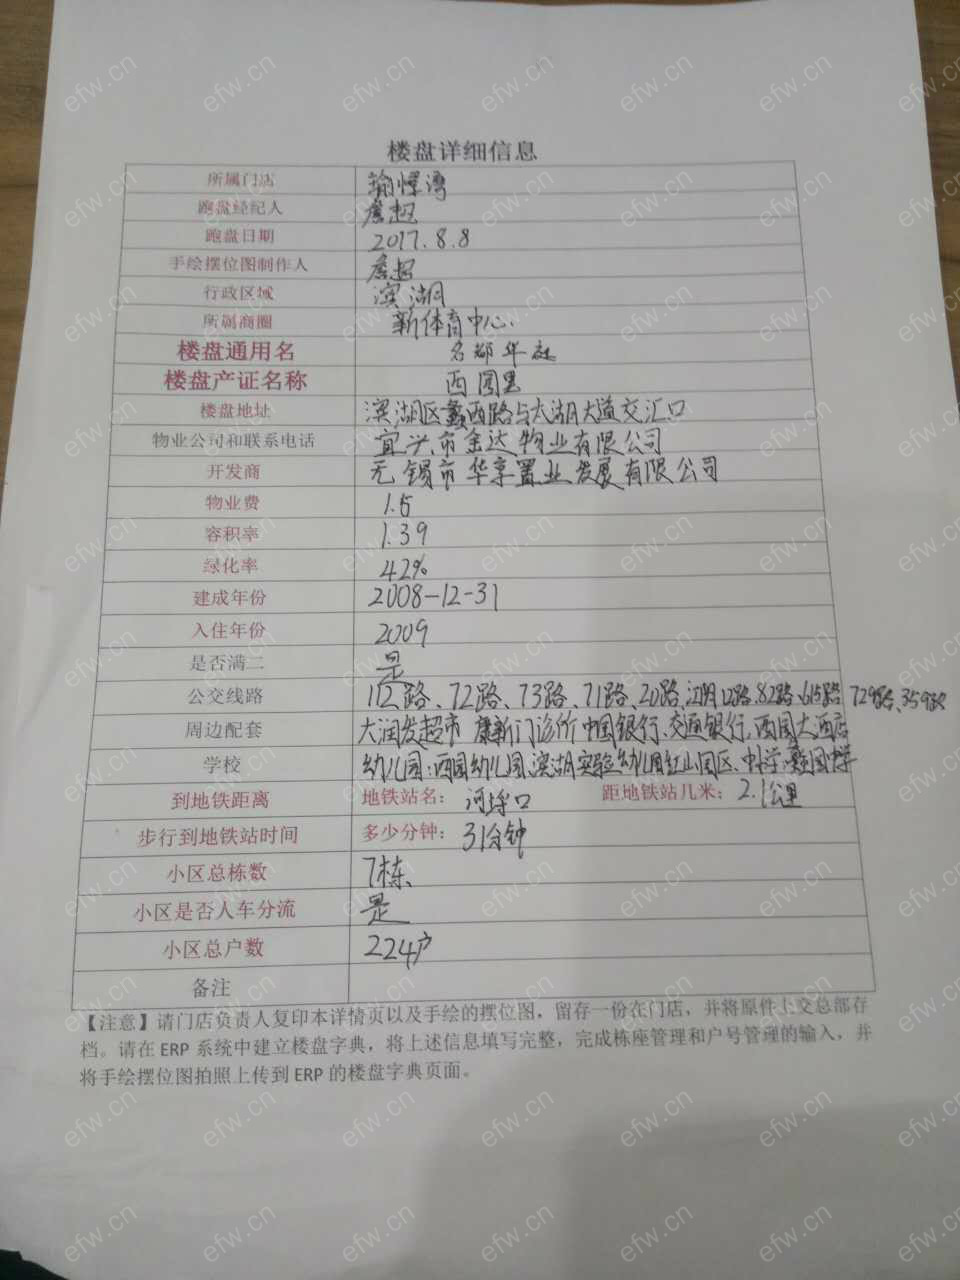 楼盘详细信息
所属门店
跑盘经纪人
跑盘日期 2017.8.8
手绘摆位图制作人
行政区域 滨湖
所属商圈 新体育中心
楼盘通用名 名都华庭
楼盘产证名称 西园里
楼盘地址 滨湖区蠡西路与太湖大道交汇口
物业公司和联系电话 宜兴市金达物业有限公司
开发商 无锡市华享置业发展有限公司
物业费 1.5
容积率 1.39
绿化率 42%
建成年份 2008-12-31
入住年份 2009
是否满二 是
公交线路 112路、72路、73路、71路、20路、江阴12路、82路、615路、729路、359路
周边配套 大润发超市 康新门诊 中国银行、交通银行、西园大酒店
学校 幼儿园:西园幼儿园、滨湖实验幼儿园红山园区、中学:蠡园中学
到地铁距离 地铁站名: 河埒口 距地铁站几米: 2.1公里
步行到地铁站时间 多少分钟: 31分钟
小区总栋数 7栋
小区是否人车分流 是
小区总户数 224户
备注
【注意】请门店负责人复印本详情页以及手绘的摆位图,留存一份在门店,并将原件上交总部存
档。请在 ERP 系统中建立楼盘字典,将上述信息填写完整,完成栋座管理和户号管理的输入,并
将手绘摆位图拍照上传到 ERP 的楼盘字典页面。
efw.cn